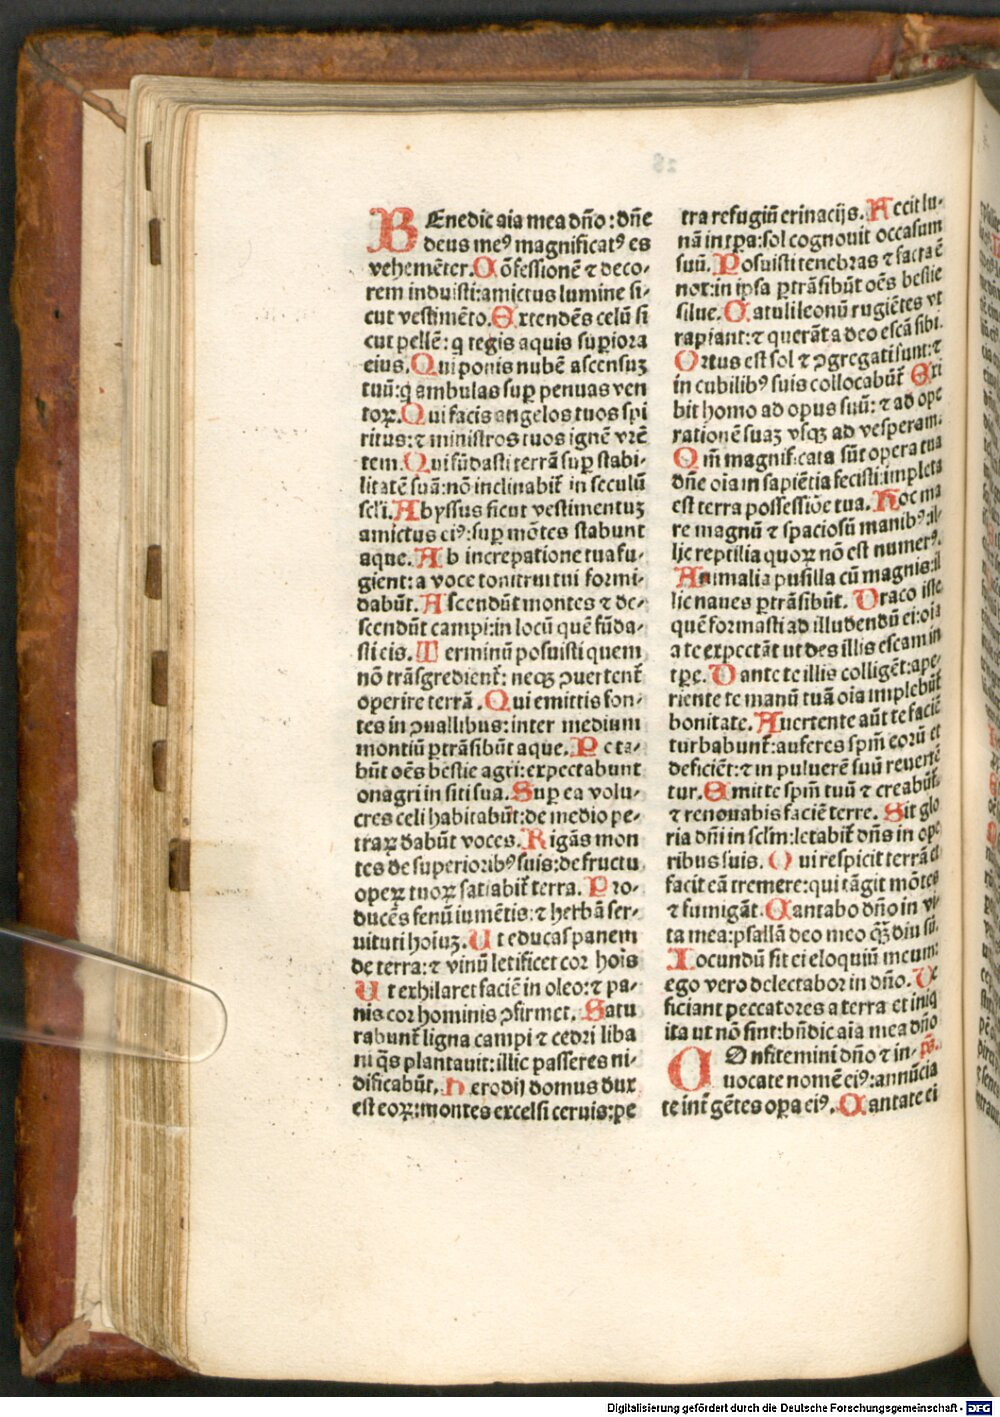 BEnedic aīa mea dn̄o: dn̄e
deus meꝰ magnificatꝰ es
vehemēter. Cōfessionē ⁊ deco-
rem induisti: amictus lumine si-
cut vestimēto. Extendēs celū si
cut pellē: q̄ tegis aquis superiora
eius. Qui ponis nubē ascensuꝫ
tuū: q̄ ambulas suꝑ pennas ven
toꝝ. Qui facis angelos tuos spi
ritus: ⁊ ministros tuos ignē vrē
tem. Qui fūdasti terrā suꝑ stabi-
litatē suā: nō inclinabit̄ in seculū
scl'i. Abyssus sicut vestimentuꝫ
amictus eiꝰ: suꝑ mōtes stabunt
aque. Ab increpatione tua fu-
gient: a voce tonitrui tui formi-
dabūt. Ascendūt montes ⁊ de-
scendūt campi: in locū quē fūda-
sti eis. Terminū posuisti quem
nō trāsgredient̄: neqꝫ ꝯuertent̄
operire terrā. Qui emittis fon-
tes in ꝯuallibus: inter medium
montiū ꝑtrāsibūt aque. Pota-
būt oēs bestie agri: expectabunt
onagri in siti sua. Suꝑ ea volu-
cres celi habitabūt: de medio pe-
traꝝ dabūt voces. Rigās mon
tes de superioribꝰ suis: de fructu
opeꝝ tuoꝝ satiabit̄ terra. Pro-
ducēs fenū iumētis: ⁊ herbā ser-
uituti hoīuꝫ. Ut educas panem
de terra: ⁊ vinū letificet cor hoīs
Ut exhilaret faciē in oleo: ⁊ pa-
nis cor hominis ꝯfirmet. Satu
rabunt̄ ligna campi ⁊ cedri liba
ni q̄s plantauit: illic passeres ni-
dificabūt. Herodij domus dux
est eoꝝ: montes excelsi ceruis: pe
tra refugiū erinacijs. Fecit lu-
nā in tꝑa: sol cognouit occasum
suū. Posuisti tenebras ⁊ facta ē
nox: in ipsa ꝑtrāsibūt oēs bestie
silue. Catuli leonū rugiētes vt
rapiant: ⁊ querāt a deo escā sibi.
Ortus est sol ⁊ ꝯgregati sunt: ⁊
in cubilibꝰ suis collocabūt̄ Exi
bit homo ad opus suū: ⁊ ad ope
rationē suaꝫ vsqꝫ ad vesperam.
Qm̄ magnificata sūt opera tua
dn̄e oīa in sapiētia fecisti: impleta
est terra possessiōe tua. Hoc ma
re magnū ⁊ spaciosū manibꝰ: il-
lic reptilia quoꝝ nō est numerꝰ.
Animalia pusilla cū magnis: il
lic naues ꝑtrāsibūt. Draco iste
quē formasti ad illudendū ei: oīa
a te expectāt ut des illis escam in
tꝑe. Dante te illis colligēt: ape-
riente te manū tuā oīa implebūt̄
bonitate. Auertente aūt te faciē
turbabunt̄: auferes spm̄ eorū et
deficiēt: ⁊ in puluerē suū reuertē
tur. Emitte spm̄ tuū ⁊ creabūt̄:
⁊ renouabis faciē terre. Sit glo
ria dn̄i in scl'm: letabit̄ dn̄s in ope
ribus suis. Qui respicit terrā et
facit eā tremere: qui tāgit mōtes
⁊ fumigāt. Cantabo dn̄o in vi
ta mea: psallā deo meo q̄ꝫdiu sū.
Iocundū sit ei eloquiū meum:
ego vero delectabor in dn̄o. De
ficiant peccatores a terra et iniq̄
ita ut nō sint: bn̄dic aīa mea dn̄o
COnfitemini dn̄o ⁊ in- ps̄.
uocate nomē eiꝰ: annūcia
te int̄ gētes oꝑa eiꝰ. Cantate ei
Digitalisierung gefördert durch die Deutsche Forschungsgemeinschaft - DFG